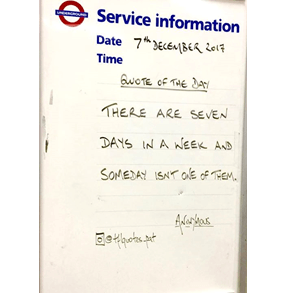 UNDERGROUND
Service information
Date 7th DECEMBER 2017
Time
QUOTE OF THE DAY
THERE ARE SEVEN
DAYS IN A WEEK AND
SOMEDAY ISNT ONE OF THEM.
ANONYMOUS